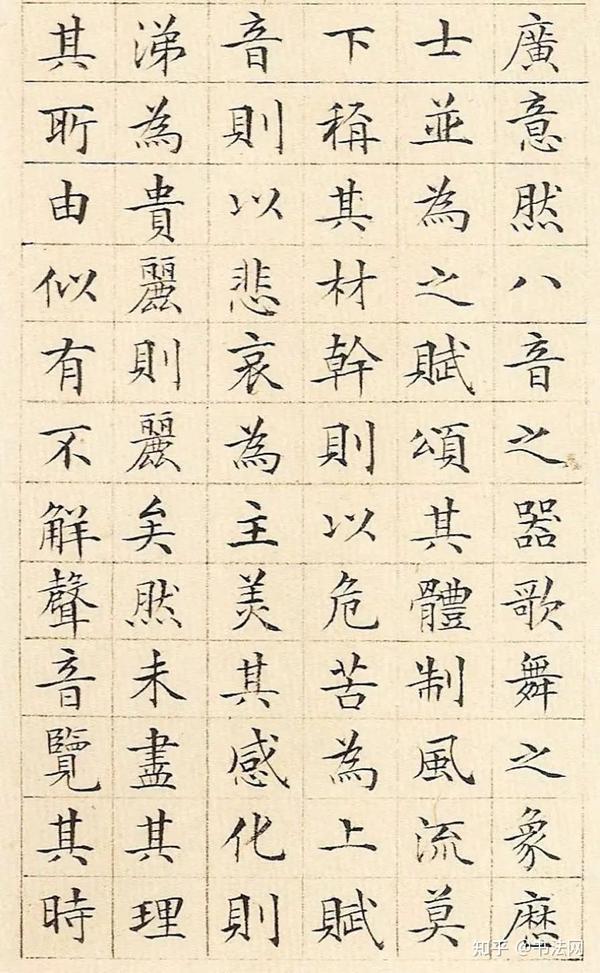 廣意然八音之器歌舞之象歷
士並為之賦頌其體制風流莫
下稱其材幹則以危苦為上賦
音則以悲哀為主美其感化則
涕為貴麗則麗矣然未盡其理
其所由似有不解聲音覽其時
知乎 @书法网